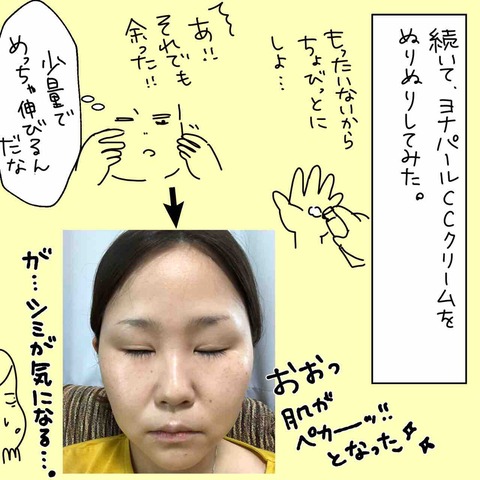 続いて、ヨナパールCCクリームを
ぬりぬりしてみた。
もったいないから
ちょびっとに
しよ…
あ!!
それでも
余った!!
少量で
めっちゃ伸びるん
だな
おおっ
肌が
ペカーーッ!!
となった☆☆
が…シミが気になる…。